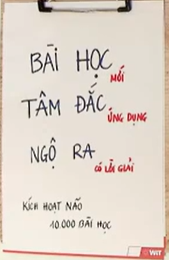 BÀI HỌC MỚI
TÂM ĐẮC ỨNG DỤNG
NGỘ RA CÓ LỜI GIẢI
KÍCH HOẠT NÃO
10.000 BÀI HỌC
WIT